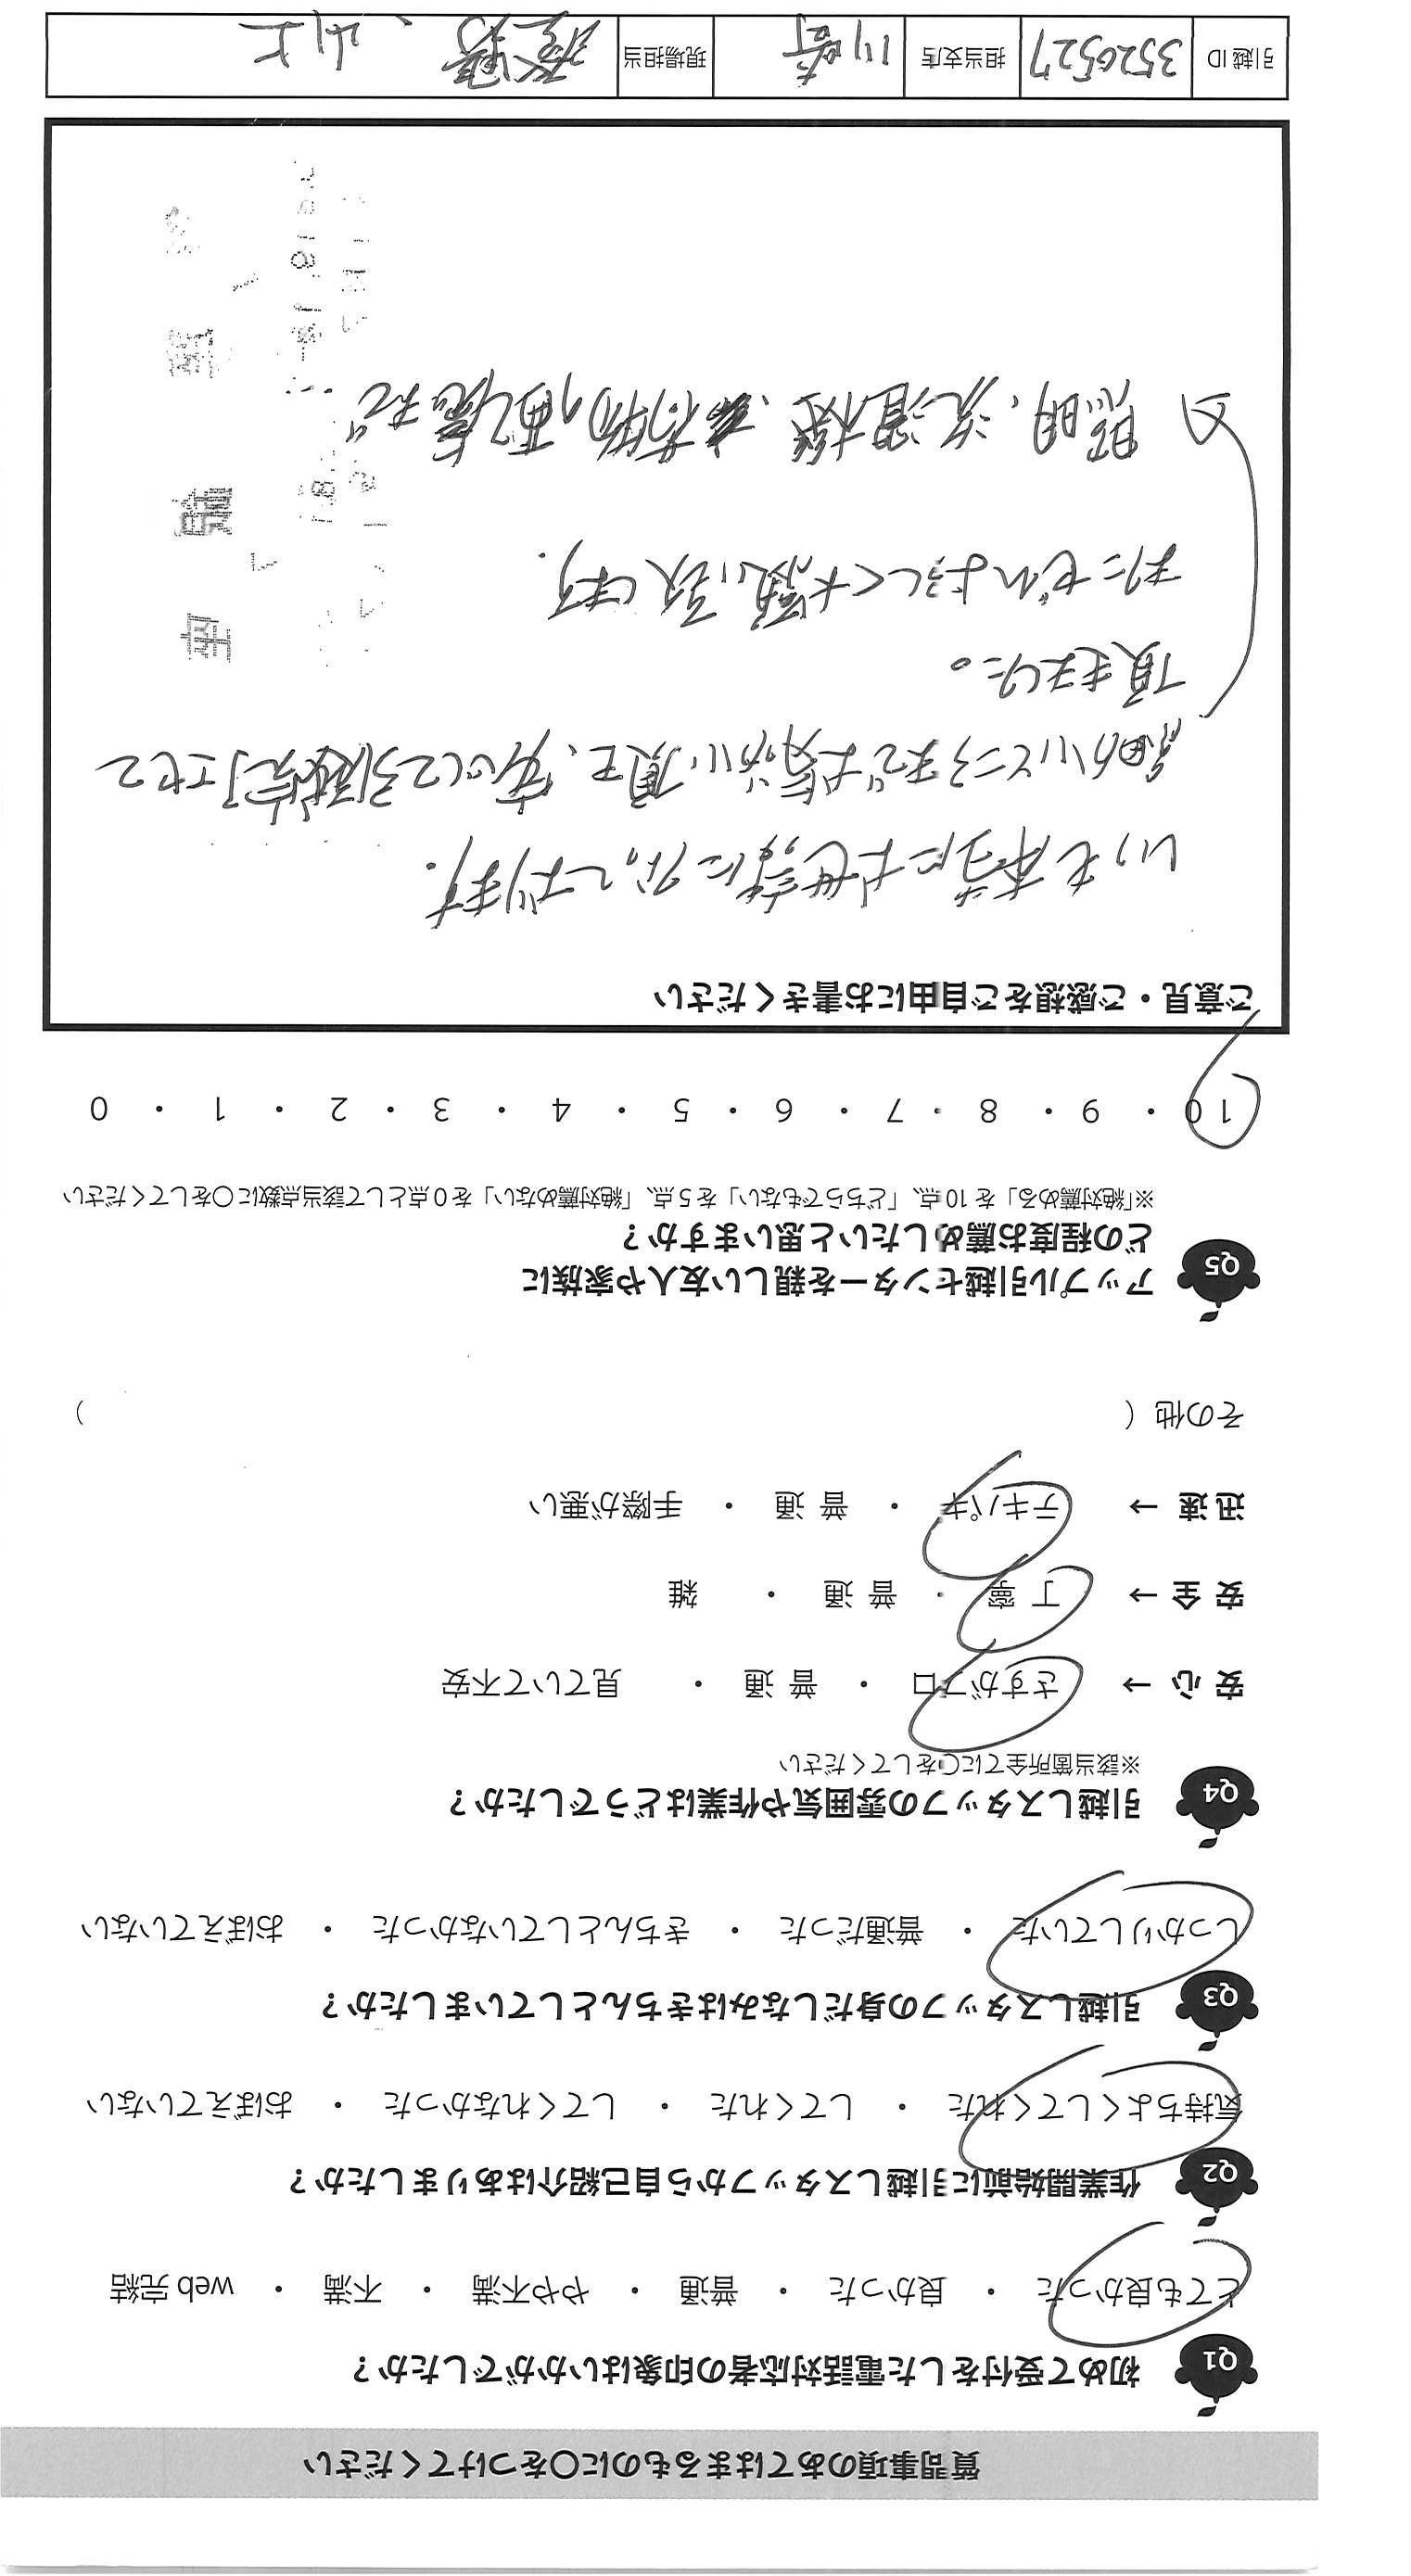 質問事項のあてはまるものに〇をつけてください
Q1 初めて受付をした電話対応者の印象はいかがでしたか？
とても良かった ・ 良かった ・ 普通 ・ やや不満 ・ 不満 ・ web 完結
Q2 作業開始前に引越しスタッフから自己紹介はありましたか？
気持ちよくしてくれた ・ してくれた ・ してくれなかった ・ おぼえていない
Q3 引越しスタッフの身だしなみはきちんとしていましたか？
しっかりしていた ・ 普通だった ・ きちんとしていなかった ・ おぼえていない
Q4 引越しスタッフの雰囲気や作業はどうでしたか？
※該当箇所全てに〇をしてください
安 心 → さすがプロ ・ 普 通 ・ 見ていて不安
安 全 → 丁 寧 ・ 普 通 ・ 雑
迅 速 → テキパキ ・ 普 通 ・ 手際が悪い
その他（ ）
Q5 アップル引越センターを親しい友人や家族に
どの程度お薦めしたいと思いますか？
※「絶対薦める」を 10 点、「どちらでもない」を 5 点、「絶対薦めない」を 0 点として該当点数に〇をしてください
10 ・ 9 ・ 8 ・ 7 ・ 6 ・ 5 ・ 4 ・ 3 ・ 2 ・ 1 ・ 0
ご意見・ご感想をご自由にお書きください
いつも本当にお世話になっております.
細かいところまでお気遣い頂き、安心して引越完了させて
頂きました。
またぜひよろしくお願い致します.
照明、洗濯機、お荷物の配慮など
引越 ID 3520527 担当支店 川崎 現場担当 、山上